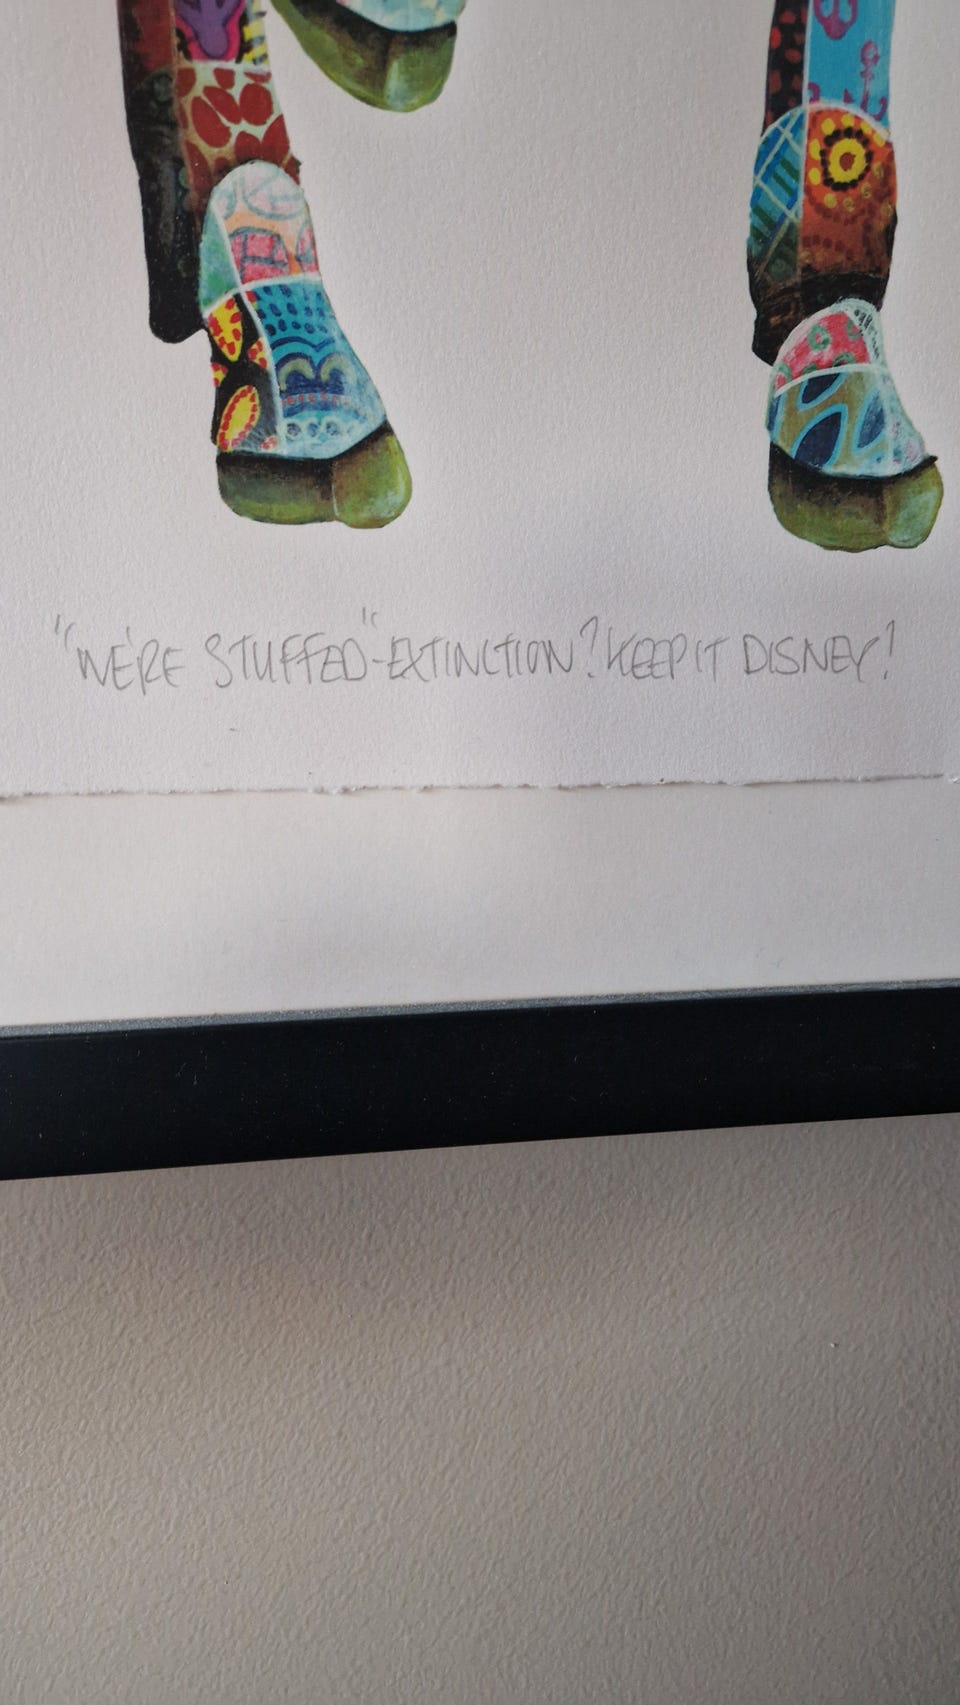 "WE'RE STUFFED"-EXTINCTION? KEEP IT DISNEY!